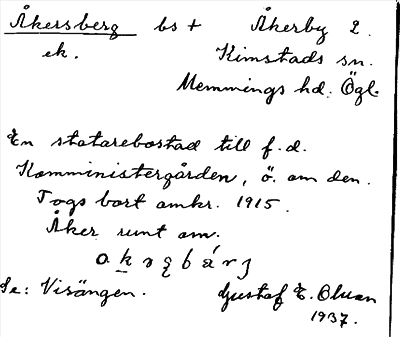 Åkersberg bs + Åkerby 2.
ek. Kimstads sn.
Memmings hd. Ögl.
En statarebostad till f.d.
Komministergården, ö. om den.
Togs bort omkr. 1915.
Åker runt om.
Se: Visängen. Gustaf E. Olsson
1937.